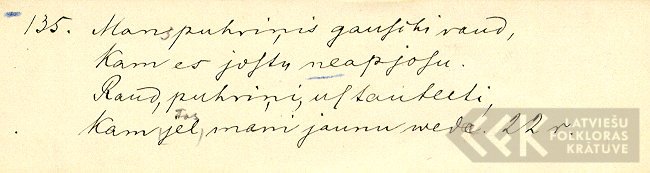 135. Mans puhriņis gauschi raud,
Kam es jostu neapjosu.
Raud, puhriņi, uf tauteeti,
Kam jel mani jaunu weda. 22 r.
LATVIEŠU
FOLKLORAS
KRĀTUVE